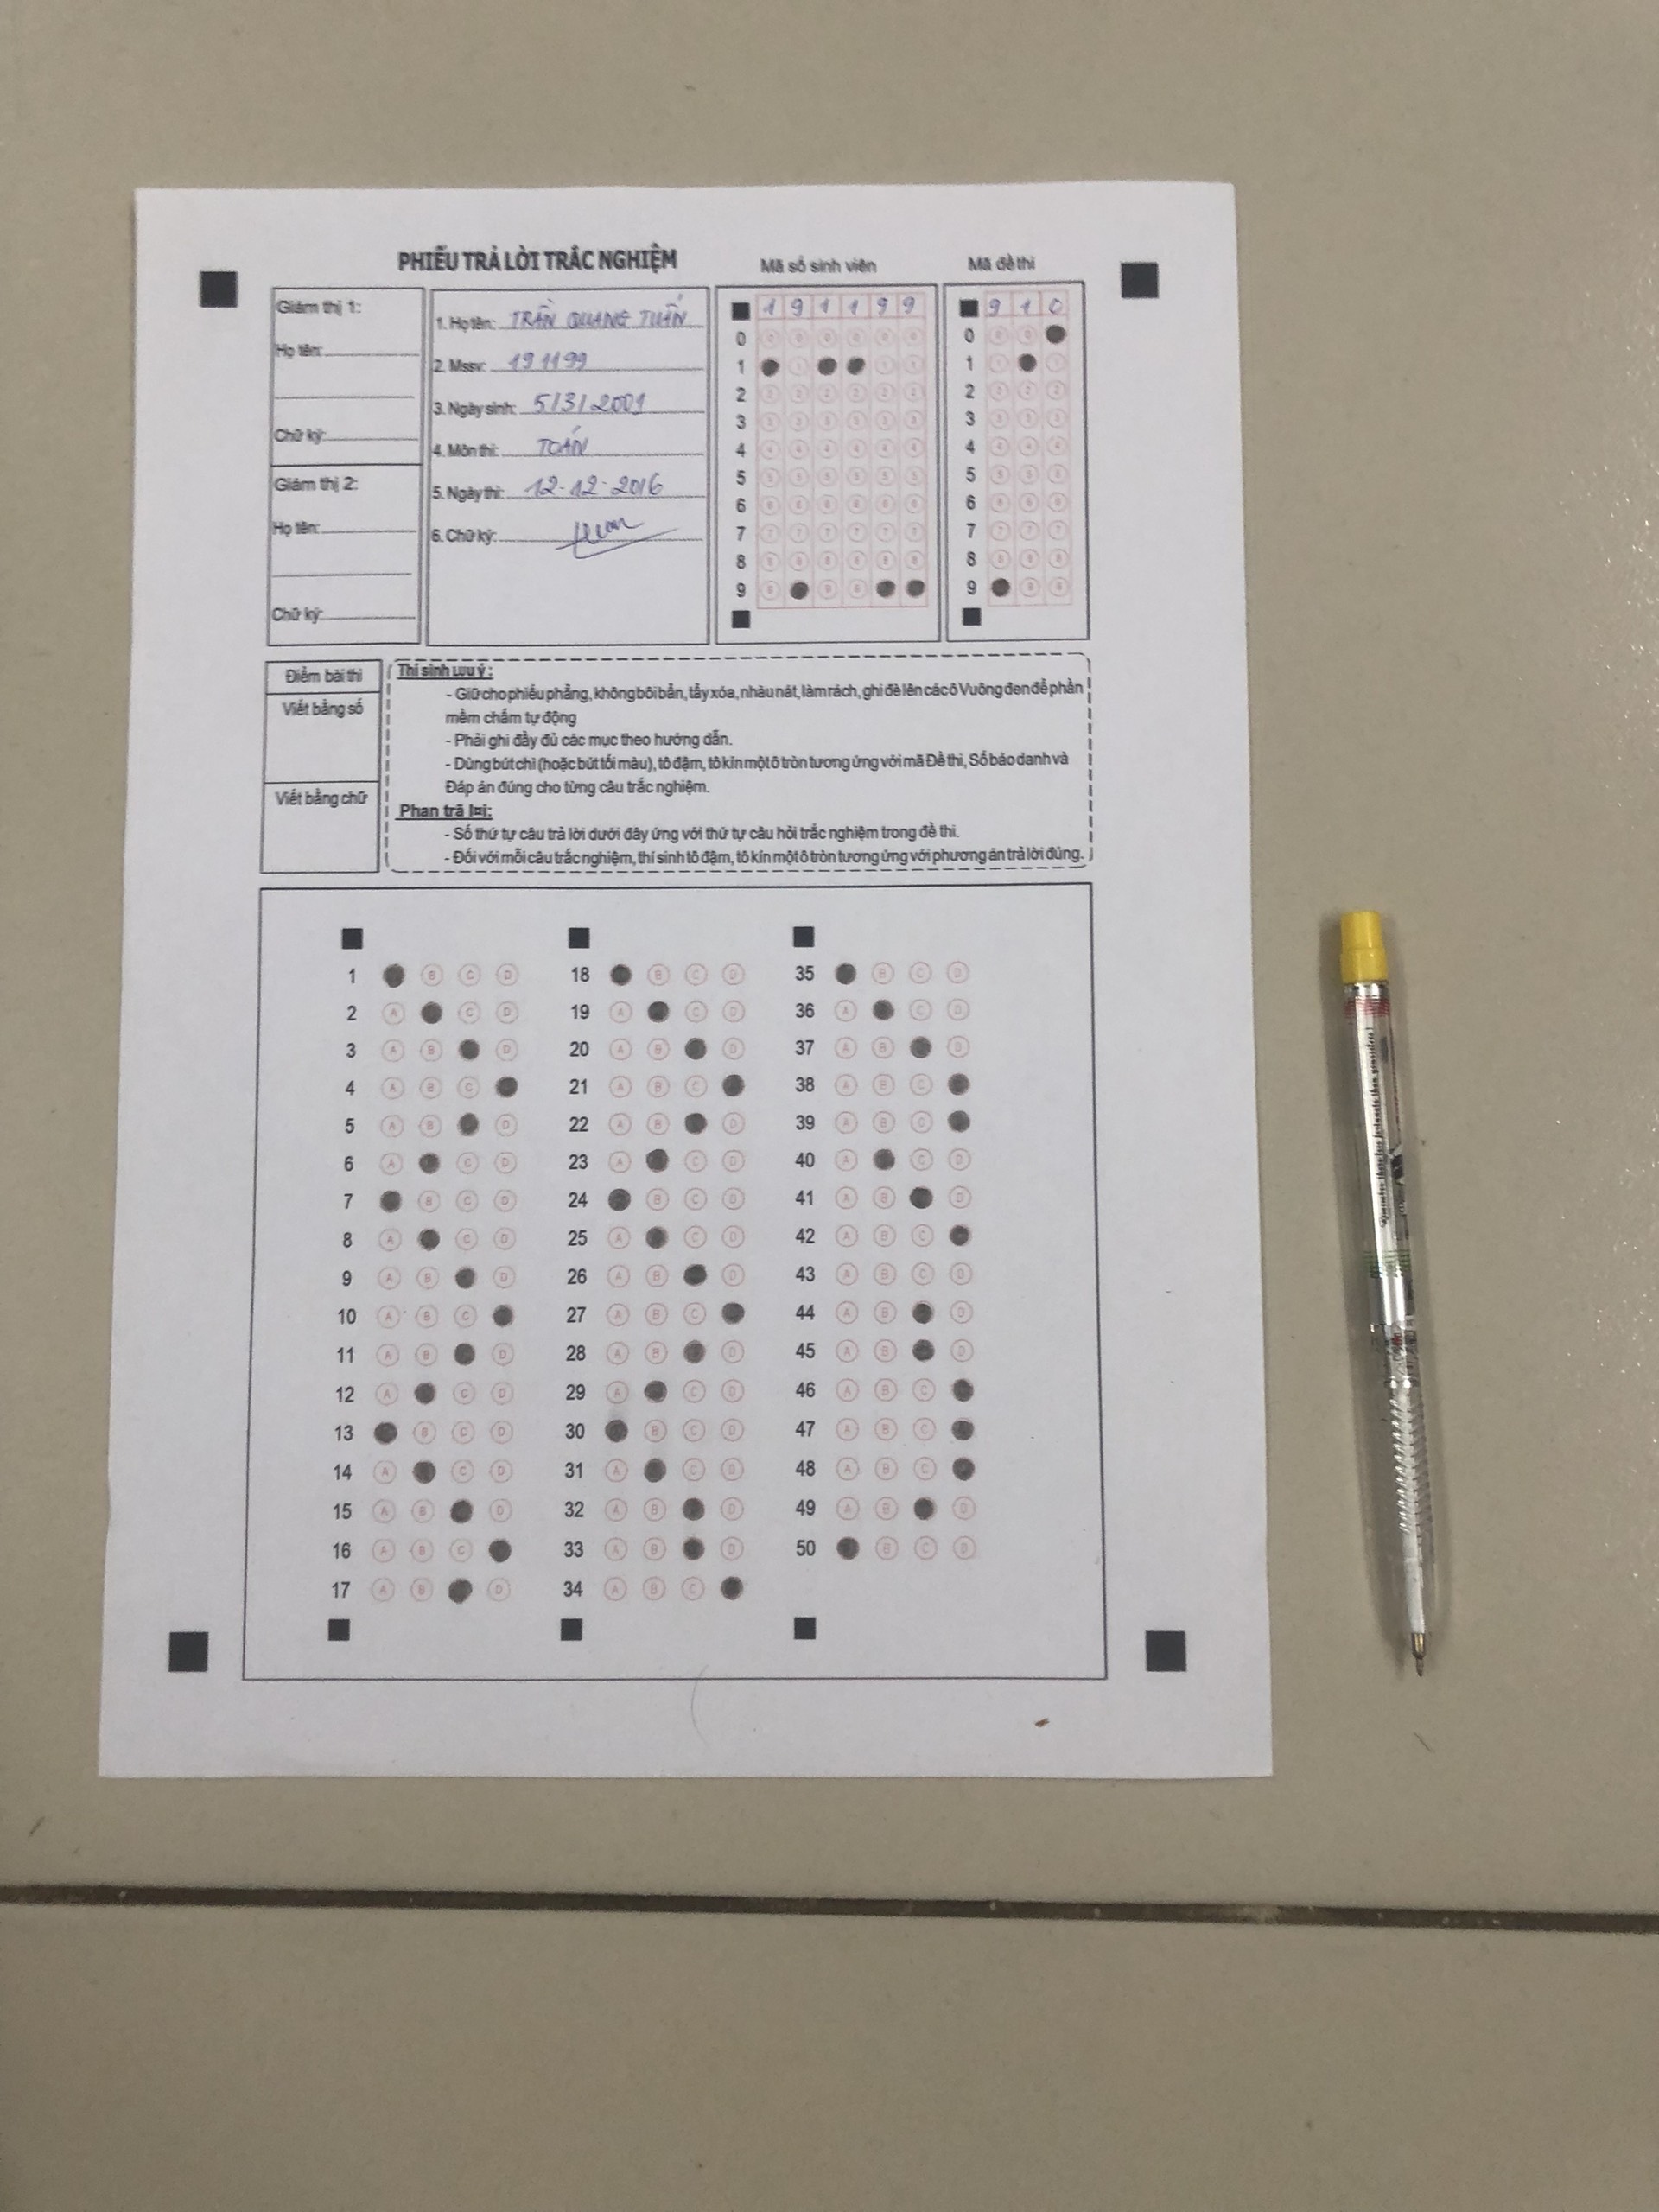 PHIẾU TRẢ LỜI TRẮC NGHIỆM
Mã số sinh viên
Mã đề thi
Giám thị 1:
Họ tên:
Chữ ký:
Giám thị 2:
Họ tên:
Chữ ký:
1. Họ tên: TRẦN QUANG TUẤN
2. Mssv: 191199
3. Ngày sinh: 5/3/2001
4. Môn thi: TOÁN
5. Ngày thi: 12-12-2016
6. Chữ ký:
1 9 1 1 9 9
0 0 0 0 0 0 0
1 1 1 1
2 2 2 2 2 2 2
3 3 3 3 3 3 3
4 4 4 4 4 4 4
5 5 5 5 5 5 5
6 6 6 6 6 6 6
7 7 7 7 7 7 7
8 8 8 8 8 8 8
9 9 9 9
9 1 0
0 0 0
1 1 1
2 2 2 2
3 3 3 3
4 4 4 4
5 5 5 5
6 6 6 6
7 7 7 7
8 8 8 8
9 9 9
Điểm bài thi
Viết bằng số
Viết bằng chữ
Thí sinh lưu ý:
- Giữ cho phiếu phẳng, không bôi bẩn, tẩy xóa, nhàu nát, làm rách, ghi đè lên các ô Vuông đen để phần
mềm chấm tự động
- Phải ghi đầy đủ các mục theo hướng dẫn.
- Dùng bút chì (hoặc bút tối màu), tô đậm, tô kín một ô tròn tương ứng với mã Đề thi, Số báo danh và
Đáp án đúng cho từng câu trắc nghiệm.
Phan trã l¤i:
- Số thứ tự câu trả lời dưới đây ứng với thứ tự câu hỏi trắc nghiệm trong đề thi.
- Đối với mỗi câu trắc nghiệm, thí sinh tô đậm, tô kín một ô tròn tương ứng với phương án trả lời đúng.
1 B C D
2 A C D
3 A B D
4 A B C
5 A B D
6 A C D
7 B C D
8 A C D
9 A B D
10 A B C
11 A B D
12 A C D
13 B C D
14 A C D
15 A B D
16 A B C
17 A B D
18 B C D
19 A C D
20 A B D
21 A B C
22 A B D
23 A C D
24 B C D
25 A C D
26 A B D
27 A B C
28 A B D
29 A C D
30 B C D
31 A C D
32 A B D
33 A B D
34 A B C
35 B C D
36 A C D
37 A B D
38 A B C
39 A B C
40 A C D
41 A B D
42 A B C
43 A B C D
44 A B D
45 A B D
46 A B C
47 A B C
48 A B C
49 A B D
50 B C D